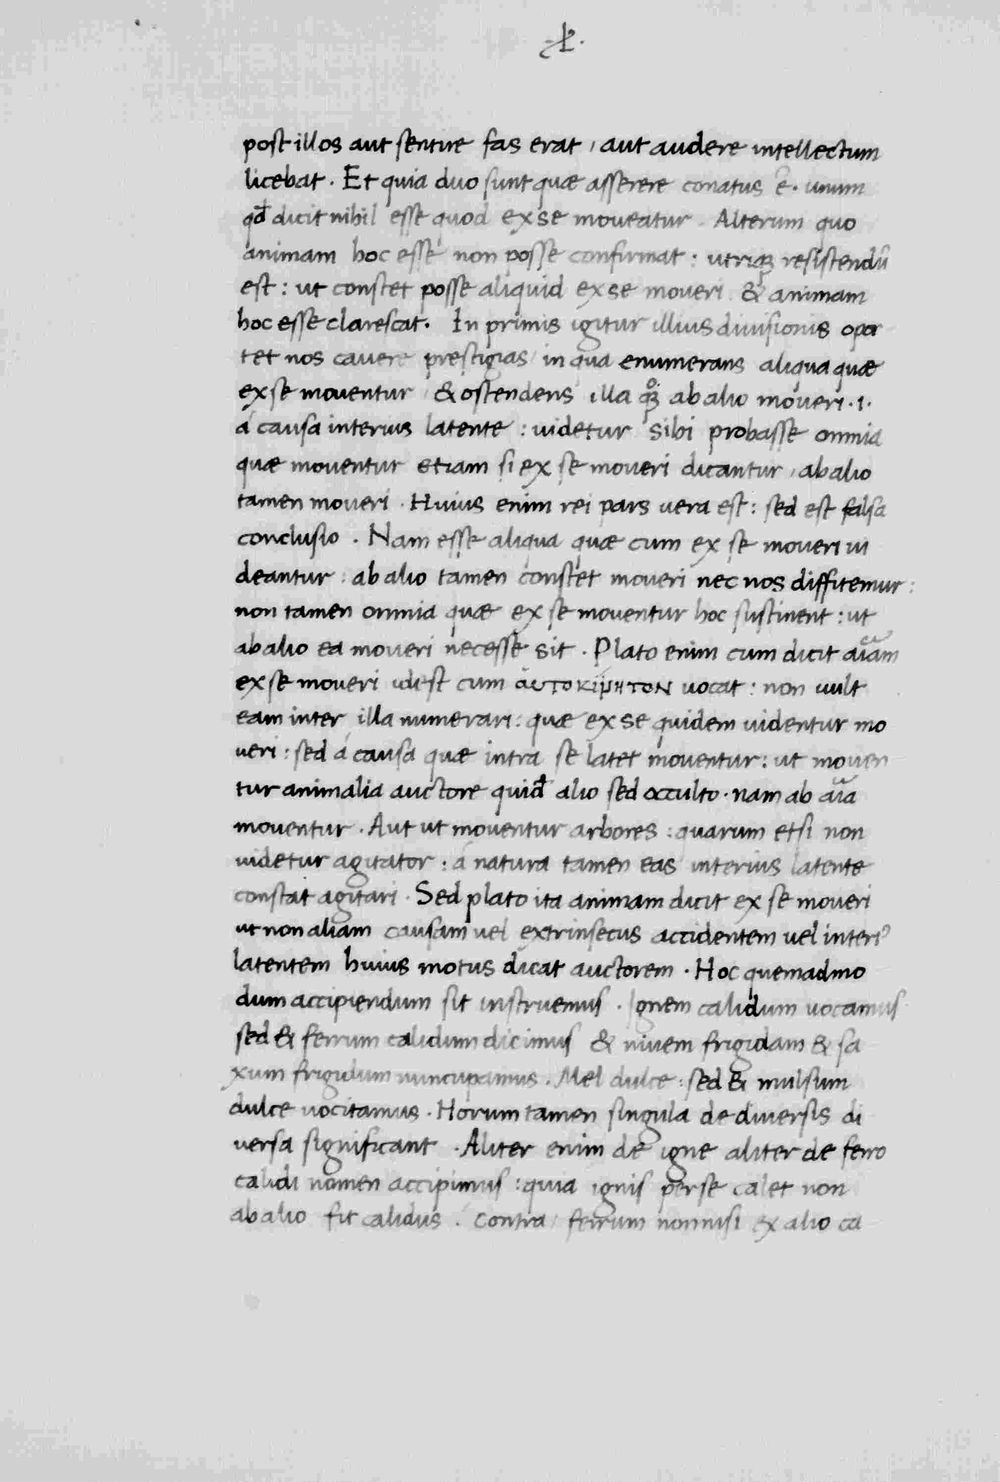 post illos aut sentire fas erat, aut audere intellectum
licebat. Et quia duo sunt quæ asserere conatus ē. unum
qđ dicit nihil esse quod ex se moveatur. Alterum quo
animam hoc esse non posse confirmat: utriqꝫ resistendū
est: ut constet posse aliquid ex se moveri & animam
hoc esse clarescat. In primis igitur illius divisionis opor
tet nos cavere prestigias in qua enumerans aliqua quæ
ex se moventur & ostendens illa qꝫ ab alio moveri .i.
á causa interius latente: videtur sibi probasse omnia
quæ moventur etiam si ex se moveri dicantur, ab alio
tamen moveri. Huius enim rei pars vera est: sed est falsa
conclusio. Nam esse aliqua quæ cum ex se moveri vi
deantur: ab alio tamen constet moveri nec nos diffitemur:
non tamen omnia quæ ex se moventur hoc sustinent: ut
ab alio ea moveri necesse sit. Plato enim cum dicit aīam
ex se moveri idest cum ἀυτοκίνητον vocat: non vult
eam inter illa numerari: quæ ex se quidem videntur mo
veri: sed á causa quæ intra se latet moventur: ut moven
tur animalia auctore quidē alio sed occulto. nam ab aīa
moventur. Aut ut moventur arbores: quarum etsi non
videtur agitator: á natura tamen eas interius latente
constat agitari. Sed plato ita animam dicit ex se moveri
ut non aliam causam vel extrinsecus accidentem vel interi⁹
latentem huius motus dicat auctorem. Hoc quemadmo
dum accipiendum sit instruemus. Ignem calidum vocamus
sed & ferrum calidum dicimus & nivem frigidam & sa
xum frigidum nuncupamus. Mel dulce: sed & mulsum
dulce vocitamus. Horum tamen singula de diversis di
versa significant. Aliter enim de igne aliter de ferro
calidi nomen accipimus: quia ignis per se calet non
ab alio fit calidus. contra ferrum nonnisi ex alio ca